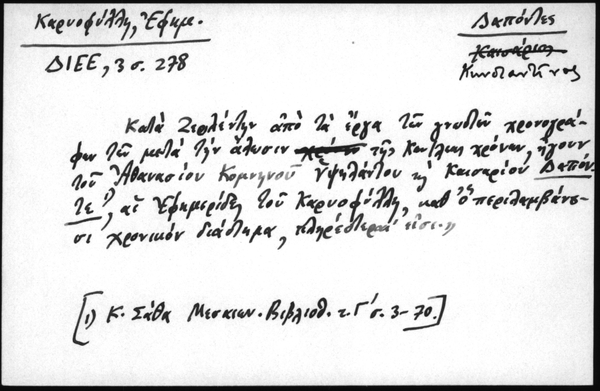 Καρυοφύλλη, Ἐφημ.
Δαπόντες
ΔΙΕΕ, 3 σ. 278
Καισάριος
Κωνσταντῖνος
Κατὰ Ζερλέντην ἀπὸ τὰ ἔργα τῶν γνωστῶν χρονογρά-
φων τῶν μετὰ τὴν ἅλωσιν τῆς Κων/λεως χρόνων, ἤγουν
τοῦ Ἀθανασίου Κομνηνοῦ Ὑψηλάντου κ Καισαρίου Δαπόν-
τε 1), αἱ Ἐφημερίδες τοῦ Καρυοφύλλη, καθ' ὃ περιλαμβάνου-
σι χρονικὸν διάστημα, πληρέστεραί εἰσι.»
[1) Κ. Σάθα Μεσαιων. Βιβλιοθ. τ. Γ' σ. 3-70.]